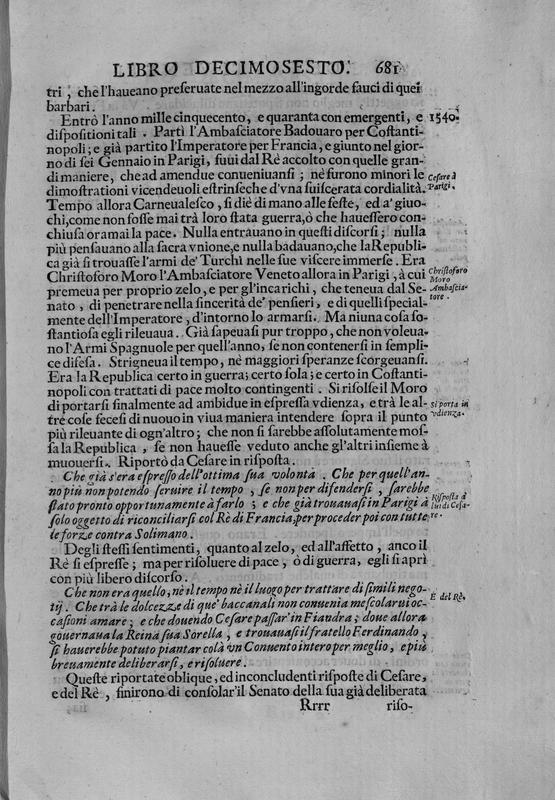 LIBRO DECIMOSESTO. 681
tri, che l'haueano preseruate nel mezzo all'ingorde fauci di quei
barbari.
Entrò l'anno mille cinquecento, e quaranta con emergenti, e 1540.
dispositioni tali. Partì l'Ambasciatore Badouaro per Costanti-
nopoli; e già partito l'Imperatore per Francia, e giunto nel gior-
no di sei Gennaio in Parigi, fuui dal Rè accolto con quelle gran-
di maniere, che ad amendue conueniuansi; nè furono minori le Cesare à
dimostrationi vicendeuoli estrinseche d'vna suiscerata cordialità. Parigi.
Tempo allora Carneualesco, si diè di mano alle feste, ed a' giuo-
chi, come non fosse mai trà loro stata guerra, ò che hauessero con-
chiusa oramai la pace. Nulla entrauano in questi discorsi; nulla
più pensauano alla sacra vnione, e nulla badauano, che la Republi-
ca già si trouasse l'armi de' Turchi nelle sue viscere immerse. Era
Christoforo Moro l'Ambasciatore Veneto allora in Parigi, à cui Christoforo
premeua per proprio zelo, e per gl'incarichi, che teneua dal Se- Moro
nato, di penetrare nella sincerità de' pensieri, e di quelli special- Ambascia-
mente dell'Imperatore, d'intorno lo armarsi. Ma niuna cosa so- tore.
stantiosa egli rileuaua. Già sapeuasi pur troppo, che non voleua-
no l'Armi Spagnuole per quell'anno, se non contenersi in sempli-
ce difesa. Strigneua il tempo, nè maggiori speranze scorgeuansi.
Era la Republica certo in guerra; certo sola; e certo in Costanti-
nopoli con trattati di pace molto contingenti. Si risolse il Moro
di portarsi finalmente ad ambidue in espressa vdienza, e trà le al- si porta in
tre cose fecesi di nuouo in viua maniera intendere sopra il punto vdienza.
più rileuante di ogn'altro; che non si sarebbe assolutamente mos-
sa la Republica, se non hauesse veduto anche gl'altri insieme à
muouersi. Riportò da Cesare in risposta.
Che già s'era espresso dell'ottima sua volontà. Che per quell'an-
no più non potendo seruire il tempo, se non per difendersi, sarebbe
stato pronto opportunamente à farlo; e che già trouauasi in Parigi à Risposta à
solo oggetto di riconciliarsi col Rè di Francia, per proceder poi con tutte lui di Cesa-
le forze contra Solimano. re.
Degli stessi sentimenti, quanto al zelo, ed all'affetto, anco il
Rè si espresse; ma per risoluere di pace, ò di guerra, egli si aprì
con più libero discorso.
Che non era quello, nè il tempo nè il luogo per trattare di simili nego-
tij. Che trà le dolcezze di que' baccanali non conuenia mescolarui oc- E del Rè.
casioni amare; e che douendo Cesare passar' in Fiandra; doue allora
gouernaua la Reina sua Sorella, e trouauasi il fratello Ferdinando,
si hauerebbe potuto piantar colà vn Conuento intero per meglio, e più
breuamente deliberarsi, e risoluere.
Queste riportate oblique, ed inconcludenti risposte di Cesare,
e del Rè, finirono di consolar'il Senato della sua già deliberata
Rrrr riso-